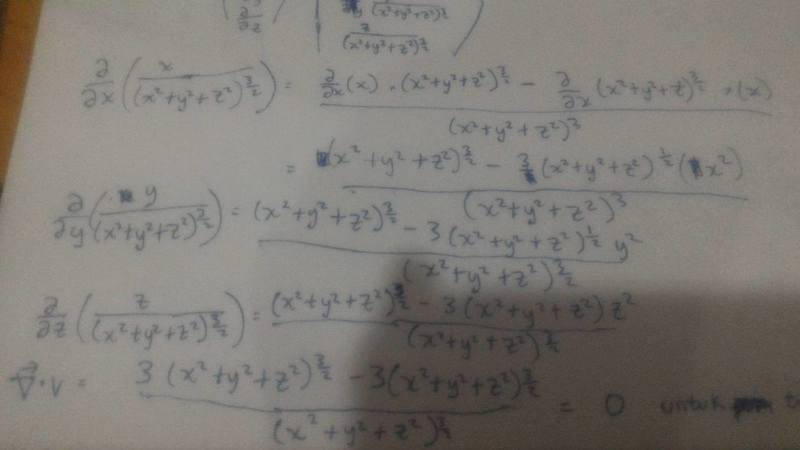 ∂/∂z
y/(x²+y²+z²)^(3/2)
z/(x²+y²+z²)^(3/2)
∂/∂x (x/(x²+y²+z²)^(3/2)) = (∂/∂x (x) . (x²+y²+z²)^(3/2) − ∂/∂x (x²+y²+z)^(3/2) . (x))/(x²+y²+z²)^3
= ((x²+y²+z²)^(3/2) − 3 (x²+y²+z²)^(1/2) (x²))/(x²+y²+z²)^3
∂/∂y (y/(x²+y²+z²)^(3/2)) = ((x²+y²+z²)^(3/2) − 3 (x²+y²+z²)^(1/2) y²)/(x²+y²+z²)^(3/2)
∂/∂z (z/(x²+y²+z²)^(3/2)) = ((x²+y²+z²)^(3/2) − 3 (x²+y²+z²) z²)/(x²+y²+z²)^(3/2)
∇⃗ . v = (3 (x²+y²+z²)^(3/2) − 3(x²+y²+z²)^(3/2))/(x²+y²+z²)^(3/2) = 0 untuk